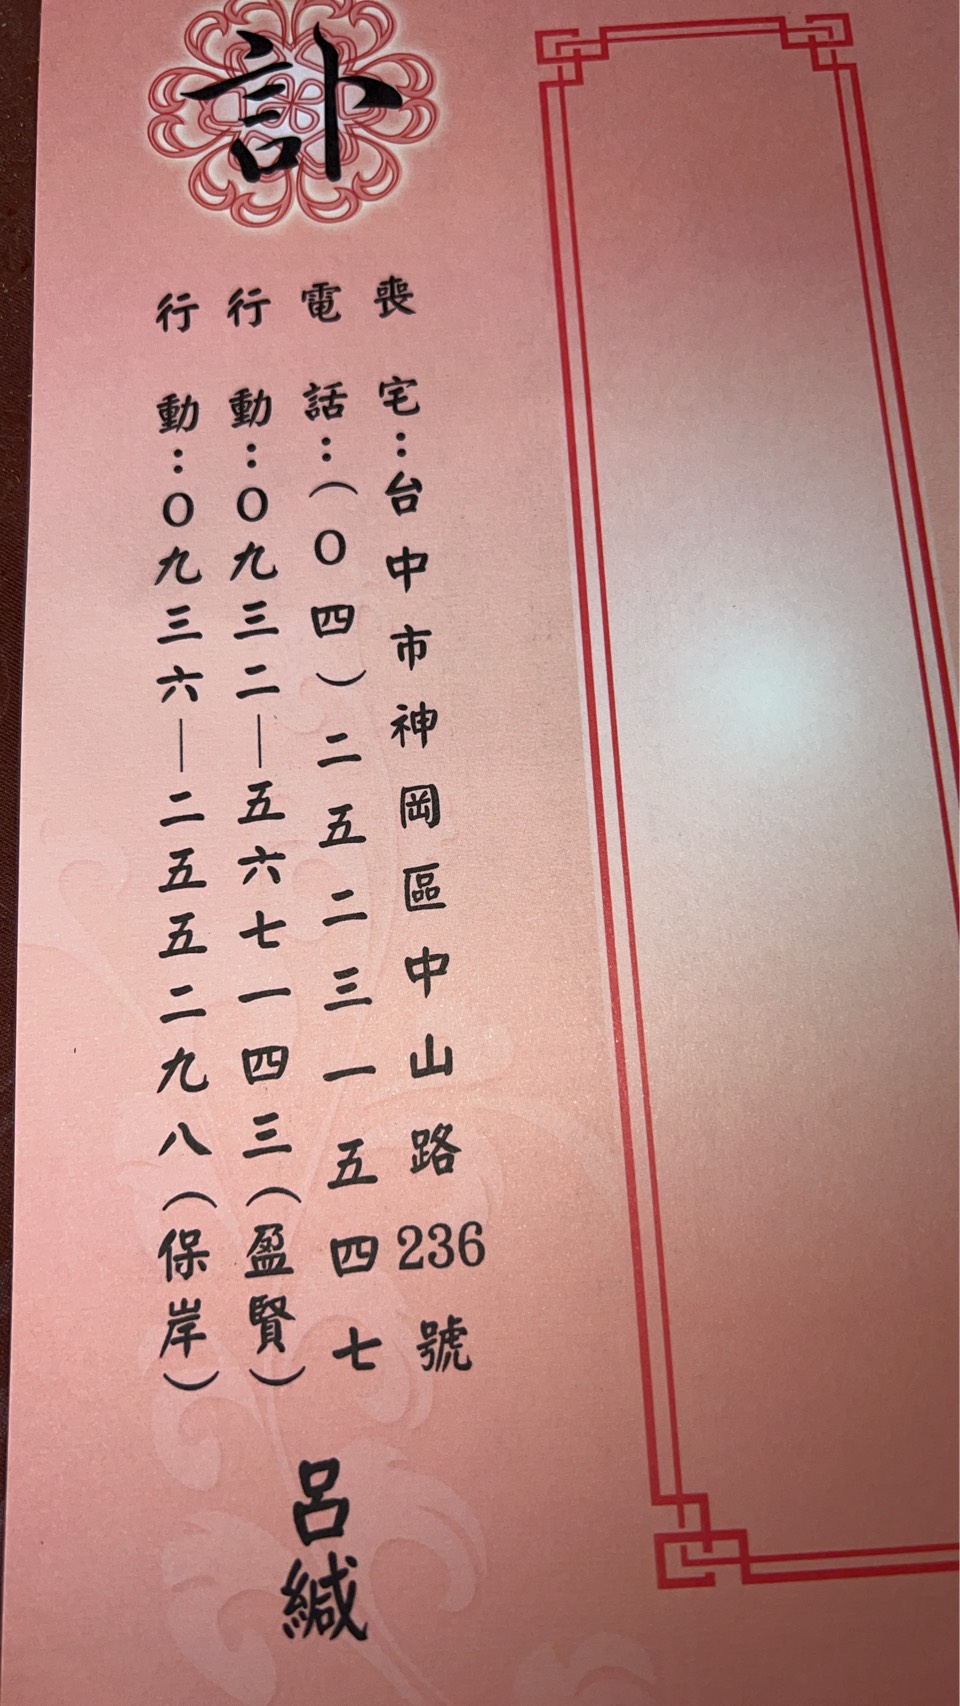 訃
喪宅：台中市神岡區中山路236號
電話：（０四）二五二三一五四七
行動：０九三二—五六七一四三（盈賢）
行動：０九三六—二五五二九八（保岸）
呂緘